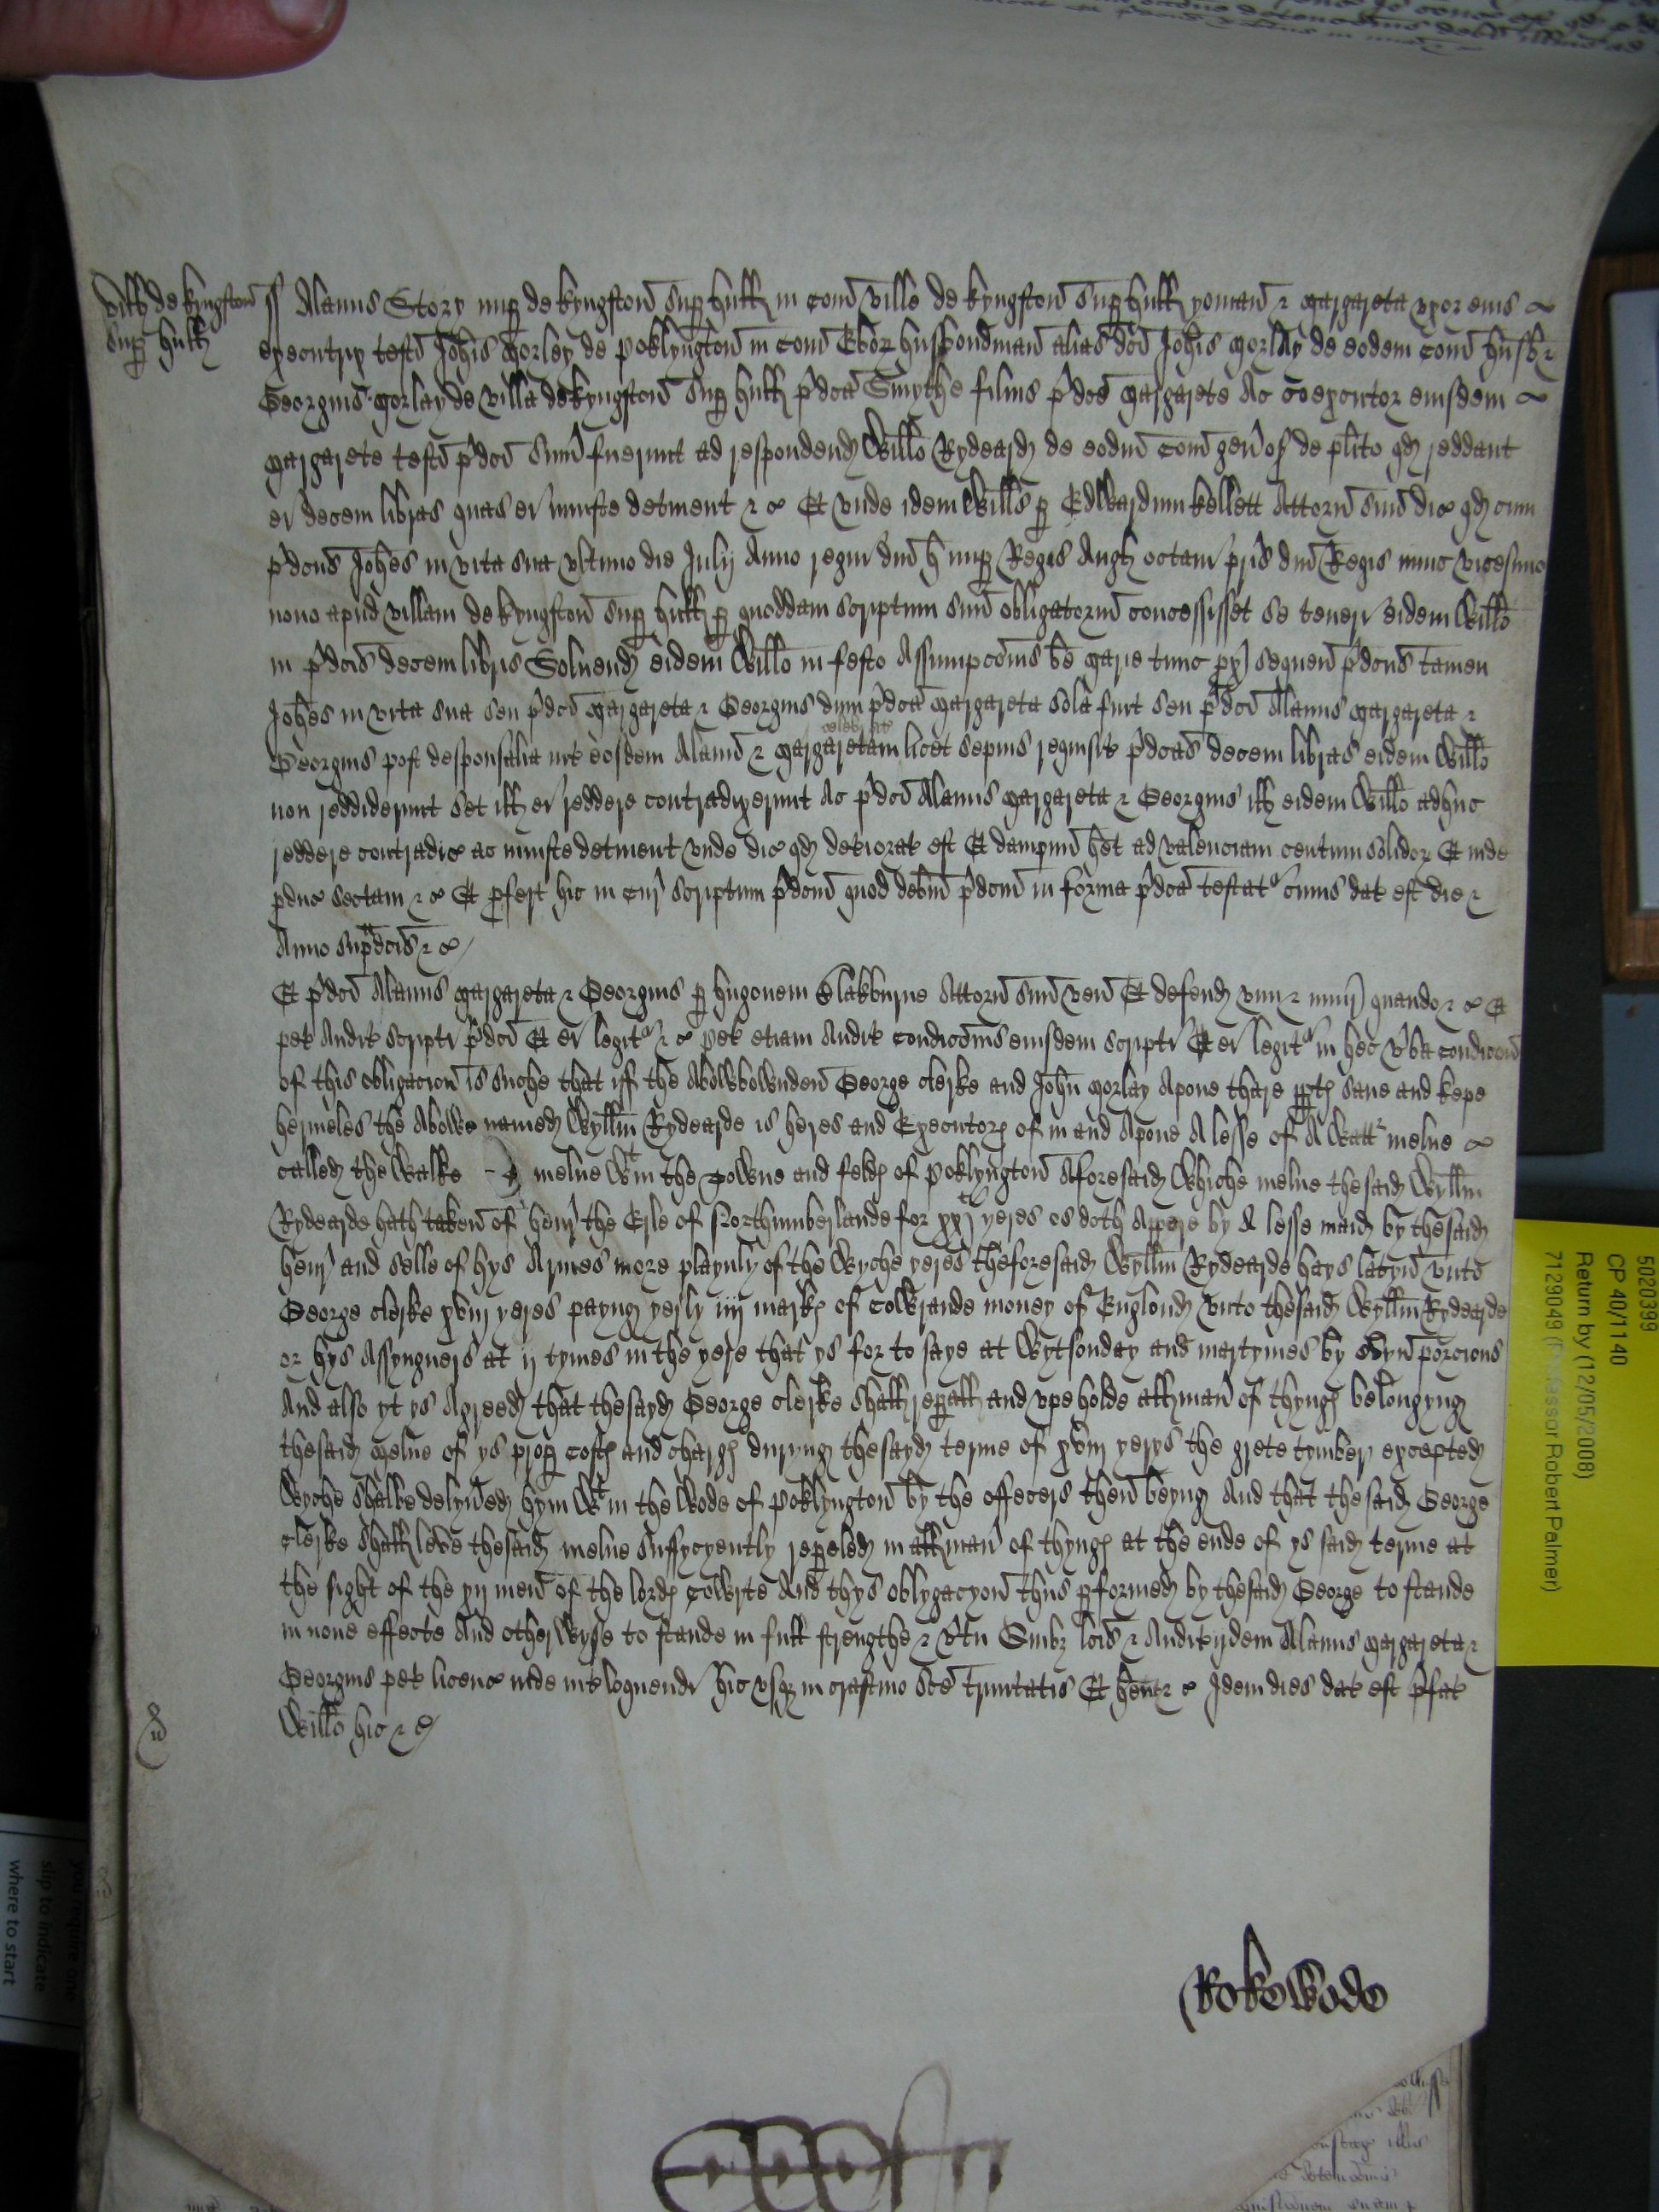 Vill de kyngston
sup hull
ss Alanus Story nup de kyngston sup hull in com ville de kyngston sup hull yoman & Margareta uxor eius
executrix testi Johis Morley de poklyngton in com Ebor husbondman alias dci Johis Morlay de eodem com husb &
Georgius Morlay de villa de kyngston sup hull pdca Smythe filius pdce Margarete Ac coexecutor eiusdem
Margarete testi pdci Sum fuerunt ad respondend Willo Rydeard de eodem com gen'os de plito qd reddant
ei decem libras quas ei iniuste detinent & c Et unde idem Wills p Edwardum kellett Attorn suu dic qd cum
pdcus Johes in vita sua ultimo die Julij Anno regni dni h nup Regis Angl octavi pris dni Regis nunc vicesimo
nono apud villam de kyngston sup hull p quoddam scriptum suu obligatoriu concessisset se teneri eidem Willo
in pdcis decem libris Solvend eidem Willo in festo Assumpcois be Marie tunc px sequen pdcus tamen
Johes in vita sua seu pdci Margareta & Georgius dum pdca Margareta sola fuit seu pdci Alanus Margareta &
celebrat
Georgius post desponsalia int eosdem Alanu & Margaretam licet sepius requisit pdcas decem libras eidem Willo
non reddiderunt set ill ei reddere contradixerunt Ac pdci Alanus Margareta & Georgius ill eidem Willo adhuc
reddere contradic ac iniuste detinent unde dic qd deteriorat est Et dampnu het ad valenciam centum solidor Et inde
pduc sectam & c Et pfert hic in cur scriptum pdcm quod debm pdcm in forma pdca testat cuius dat est die &
Anno supdcis & c
Et pdci Alanus Margareta & Georgius p hugonem Blakburne Attorn suu ven Et defend vim & iniur quando & c Et
pet Audit scripti pdci Et ei legit & c pet etiam Audit condicois eiusdem scripti Et ei legit in hec vba condicion
of this obligacion is suche that iff the Abowbownden George clerke and John Morlay Apone thare pptes save and kepe
hermeles the Abowe named Wyllm Rydearde is heres and Executors of in and Apone A lesse of A Watt melne
called the Walke melne wt in the Towne and feldes of poklyngton Aforesaid Whiche melne thesaid Wyllm
Rydearde hath taken of henr the Erle of Northumberlande for xxj yeres os doth Appere by A lesse maid by thesaid
henr and selle of hys Armes more playnly of the Wyche yeres theforesaid Wyllm Rydearde hays latyn unto
George clerke xviij yeres payng yerly iiij markes of cowrande money of Englond unto thesaid Wyllm Rydearde
or hys Assyngners at ij tymes in the yere that ys for to saye at Wytsonday and martymes by evyn porcions
And also yt ys Agreed that thesayd George clerke shall repall and upeholde all man of thynges belongyng
thesaid Melne of ys prop costes and charges duryng thesayd terme of xviij yerys the grete tymber excepted
Wyche shalbe delyved hym wt in the Wode of poklyngton by the offecers then beyng And that thesaid George
clerke shall leve thesaid melne suffycyently repeled in all man of thynges at the ende of ys said terme at
the sight of the xij men of the lordes cowrte And thys oblygacyon thus pformed by thesaid George to stande
in none effecte And otherwyse to stande in full strengthe & vtu Quibz lcis & Audit ijdem Alanus Margareta &
Georgius pet licenc inde int loquendi hic usqz in crastino Sce Trinitatis Et hent & c Idem dies dat est pfat
Willo hic & c
Rokewode
5020399
CP 40/1140
Return by (12/05/2008)
7129049 (Professor Robert Palmer)
you require one
slip to indicate
where to start